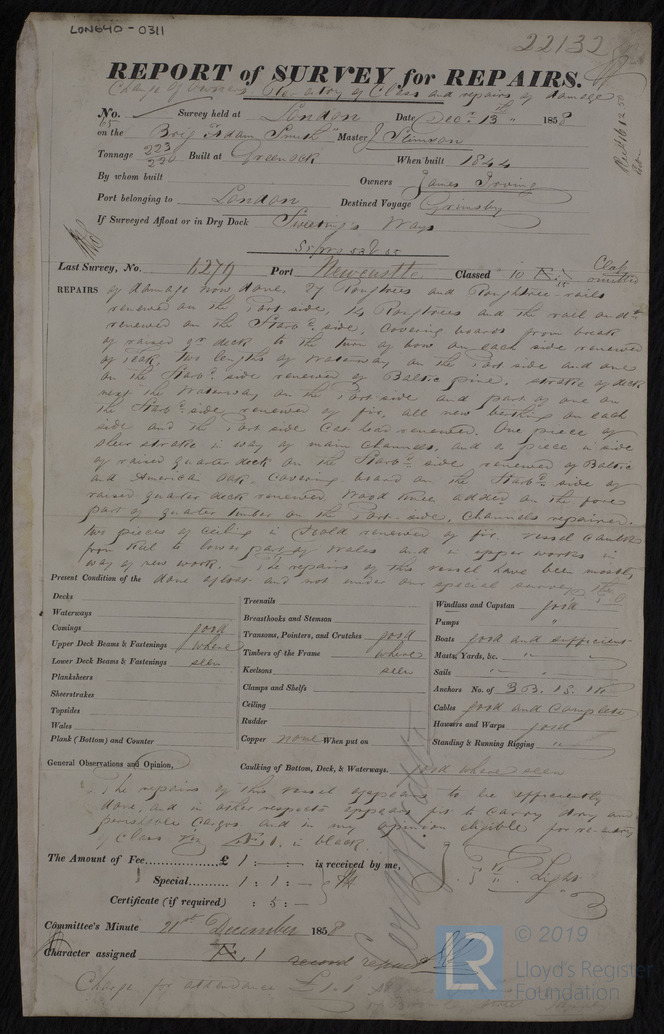 LON640-0311
22132
REPORT of SURVEY for REPAIRS.
Change of Owners, Re-entry of Class and repairs of damage
No. Survey held at London Date Decr. 13th 1858
on the Brig "Adam Smith" Master J Stimson
Tonnage 223 Built at Greenock When built 1844
230
By whom built Owners James Irving
Port belonging to London Destined Voyage Grimsby
If Surveyed Afloat or in Dry Dock Sweeting's Ways
Last Survey, No. 6279 Port Newcastle Classed 10 Class omitted
REPAIRS of damage now done, 27 Roughtrees and Roughtree rails
renewed on the Port side, 14 Roughtrees and the rail
renewed on the Starbd. side, Covering boards from break
of raised qr deck to the turn of bow on each side renewed
of Teak, two lengths of Waterway on the Port side and one
on the Starbd. side renewed of Baltic pine, strake of deck
next the Waterway on the Port side and part of one on
the Starbd. side renewed of fir, all new berthing on each
side and the Port side Cat head renewed. One piece of
sheer strake in way of main Channels, and a piece in side
of raised quarter deck on the Starbd. side renewed of Baltic
and American Oak. Covering board on the Starbd. side of
raised quarter deck renewed, Wood lined added on the fore
part of quarter timber on the Port side, Channels repaired.
two pieces of Ceiling in Hold renewed of fir, vessel Caulked
from Keel to lower part of Wales and in upper works in
way of new work. The repairs of this vessel have been mostly
done afloat and not under our special survey
Present Condition of the
Decks
Waterways
Comings good
Upper Deck Beams & Fastenings where
Lower Deck Beams & Fastenings seen
Planksheers
Sheerstrakes
Topsides
Wales
Plank (Bottom) and Counter
Treenails
Breasthooks and Stemson
Transoms, Pointers, and Crutches good
Timbers of the Frame where
Keelsons seen
Clamps and Shelfs
Ceiling
Rudder
Copper none When put on
Windlass and Capstan good
Pumps "
Boats good and sufficient
Masts, Yards, &c. " "
Sails " "
Anchors No. of 3 B. 1 S. 1 K
Cables good and Complete
Hawsers and Warps good
Standing & Running Rigging "
General Observations and Opinion, Caulking of Bottom, Deck, & Waterways. good where seen
The repairs of this vessel appears to be efficiently
done, and in other respects appears fit to carry dry and
perishable Cargos and in my opinion eligible for re-entry
of Class in black
The Amount of Fee £ 1 : - : - is received by me,
Special 1 : 1 : -
Certificate (if required) : 5 : -
Light
Committee's Minute 21st December 1858
Character assigned
second request
Charge for attendance £1.1
LR
© 2019
Lloyd's Register
Foundation